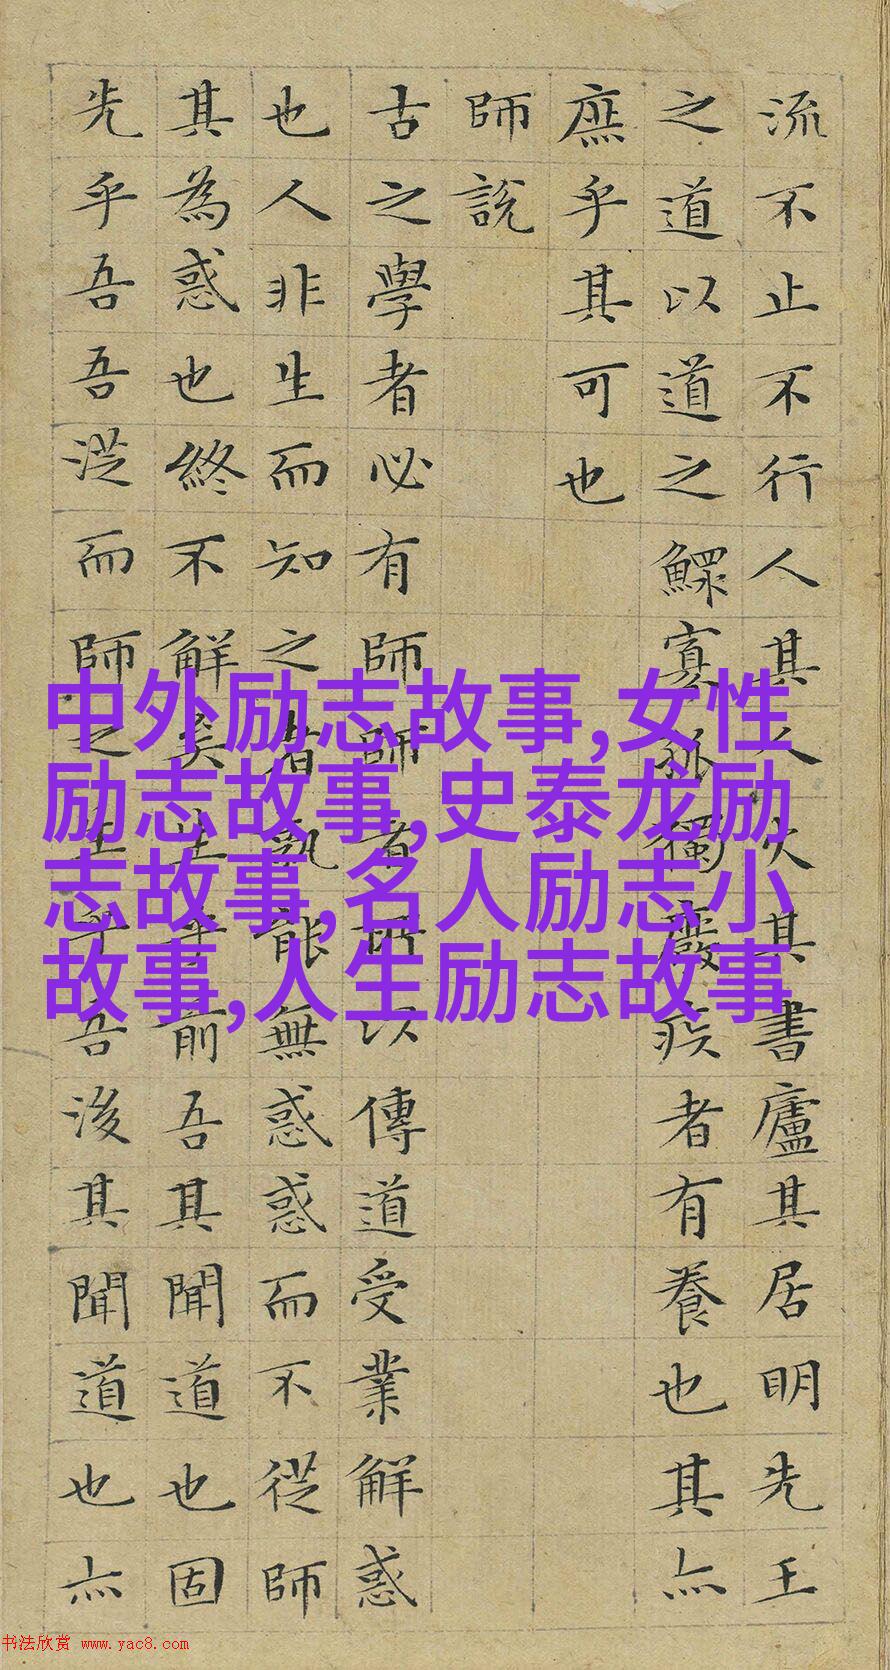 流不止不行人其人火其書廬其居明先王
之道以道之鰥寡孤獨廢疾者有養也其亦
庶乎其可也
師說
古之學者必有師師者所以傳道受業解惑
也人非生而知之者孰能無惑惑而不從師
其為惑也終不解矣生乎前吾其聞道也固
先乎吾吾從而師之生乎吾後其聞道也亦
中外励志故事,女性
励志故事,史泰龙励
志故事,名人励志小
故事,人生励志故事
书法欣赏 www.yac8.com